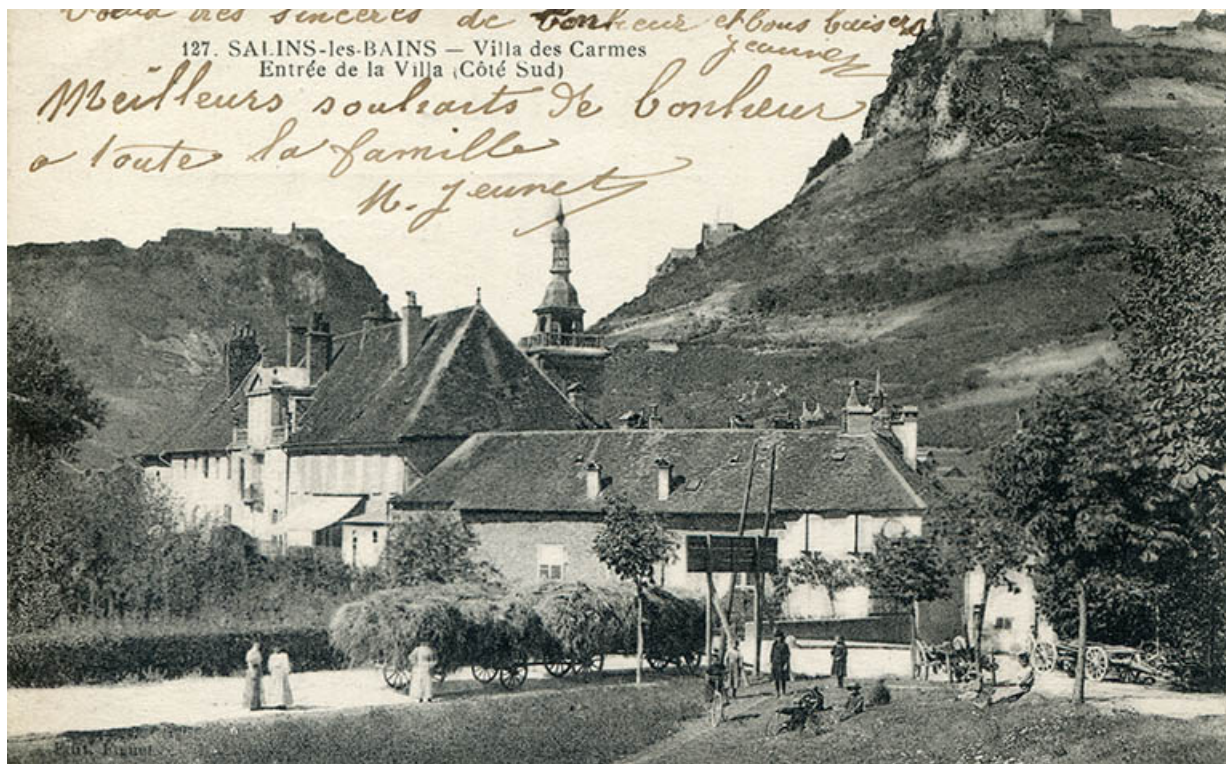 Voeux très sincères de bonheur et bons baisers
Jeannez
127. SALINS-les-BAINS — Villa des Carmes
Entrée de la Villa (Côté Sud)
Meilleurs souhaits de bonheur
a toute la famille
M. Jeunet
Edit.